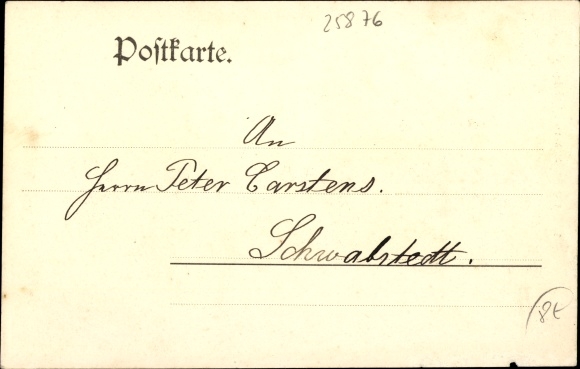 25876
Postkarte.
An
Herrn Peter Carstens.
Schwabstedt.